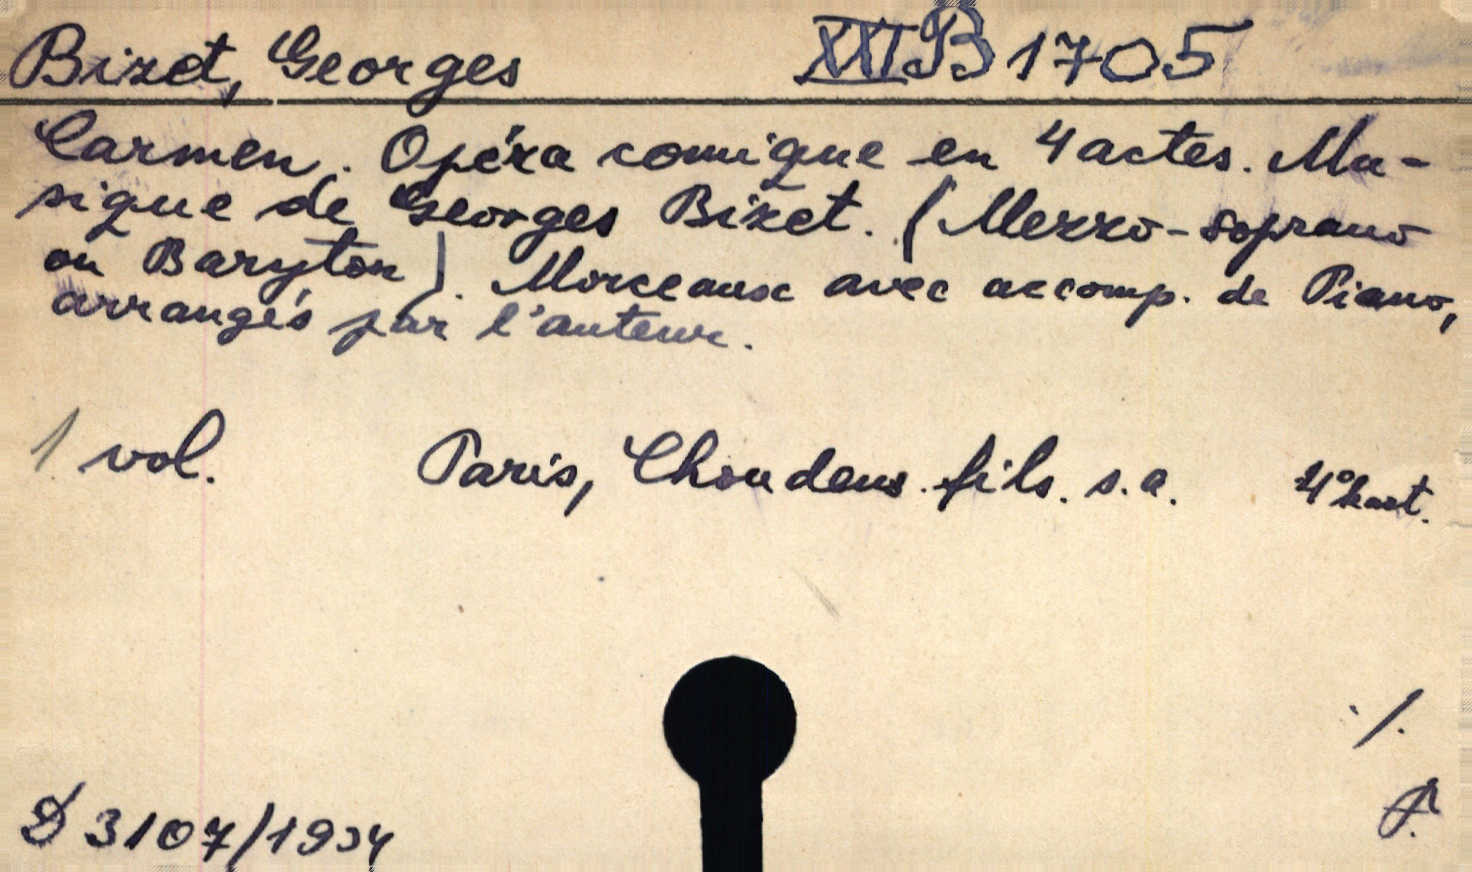 Bizet, Georges XXI B 1705
Carmen. Opéra comique en 4 actes. Mu-
sique de Georges Bizet. (Mezzo-soprano
ou Baryton). Morceaux avec accomp. de Piano,
arrangés par l'auteur.
1 vol. Paris, Choudens fils. s.a. 4° kart.
./.
D 3107/1934